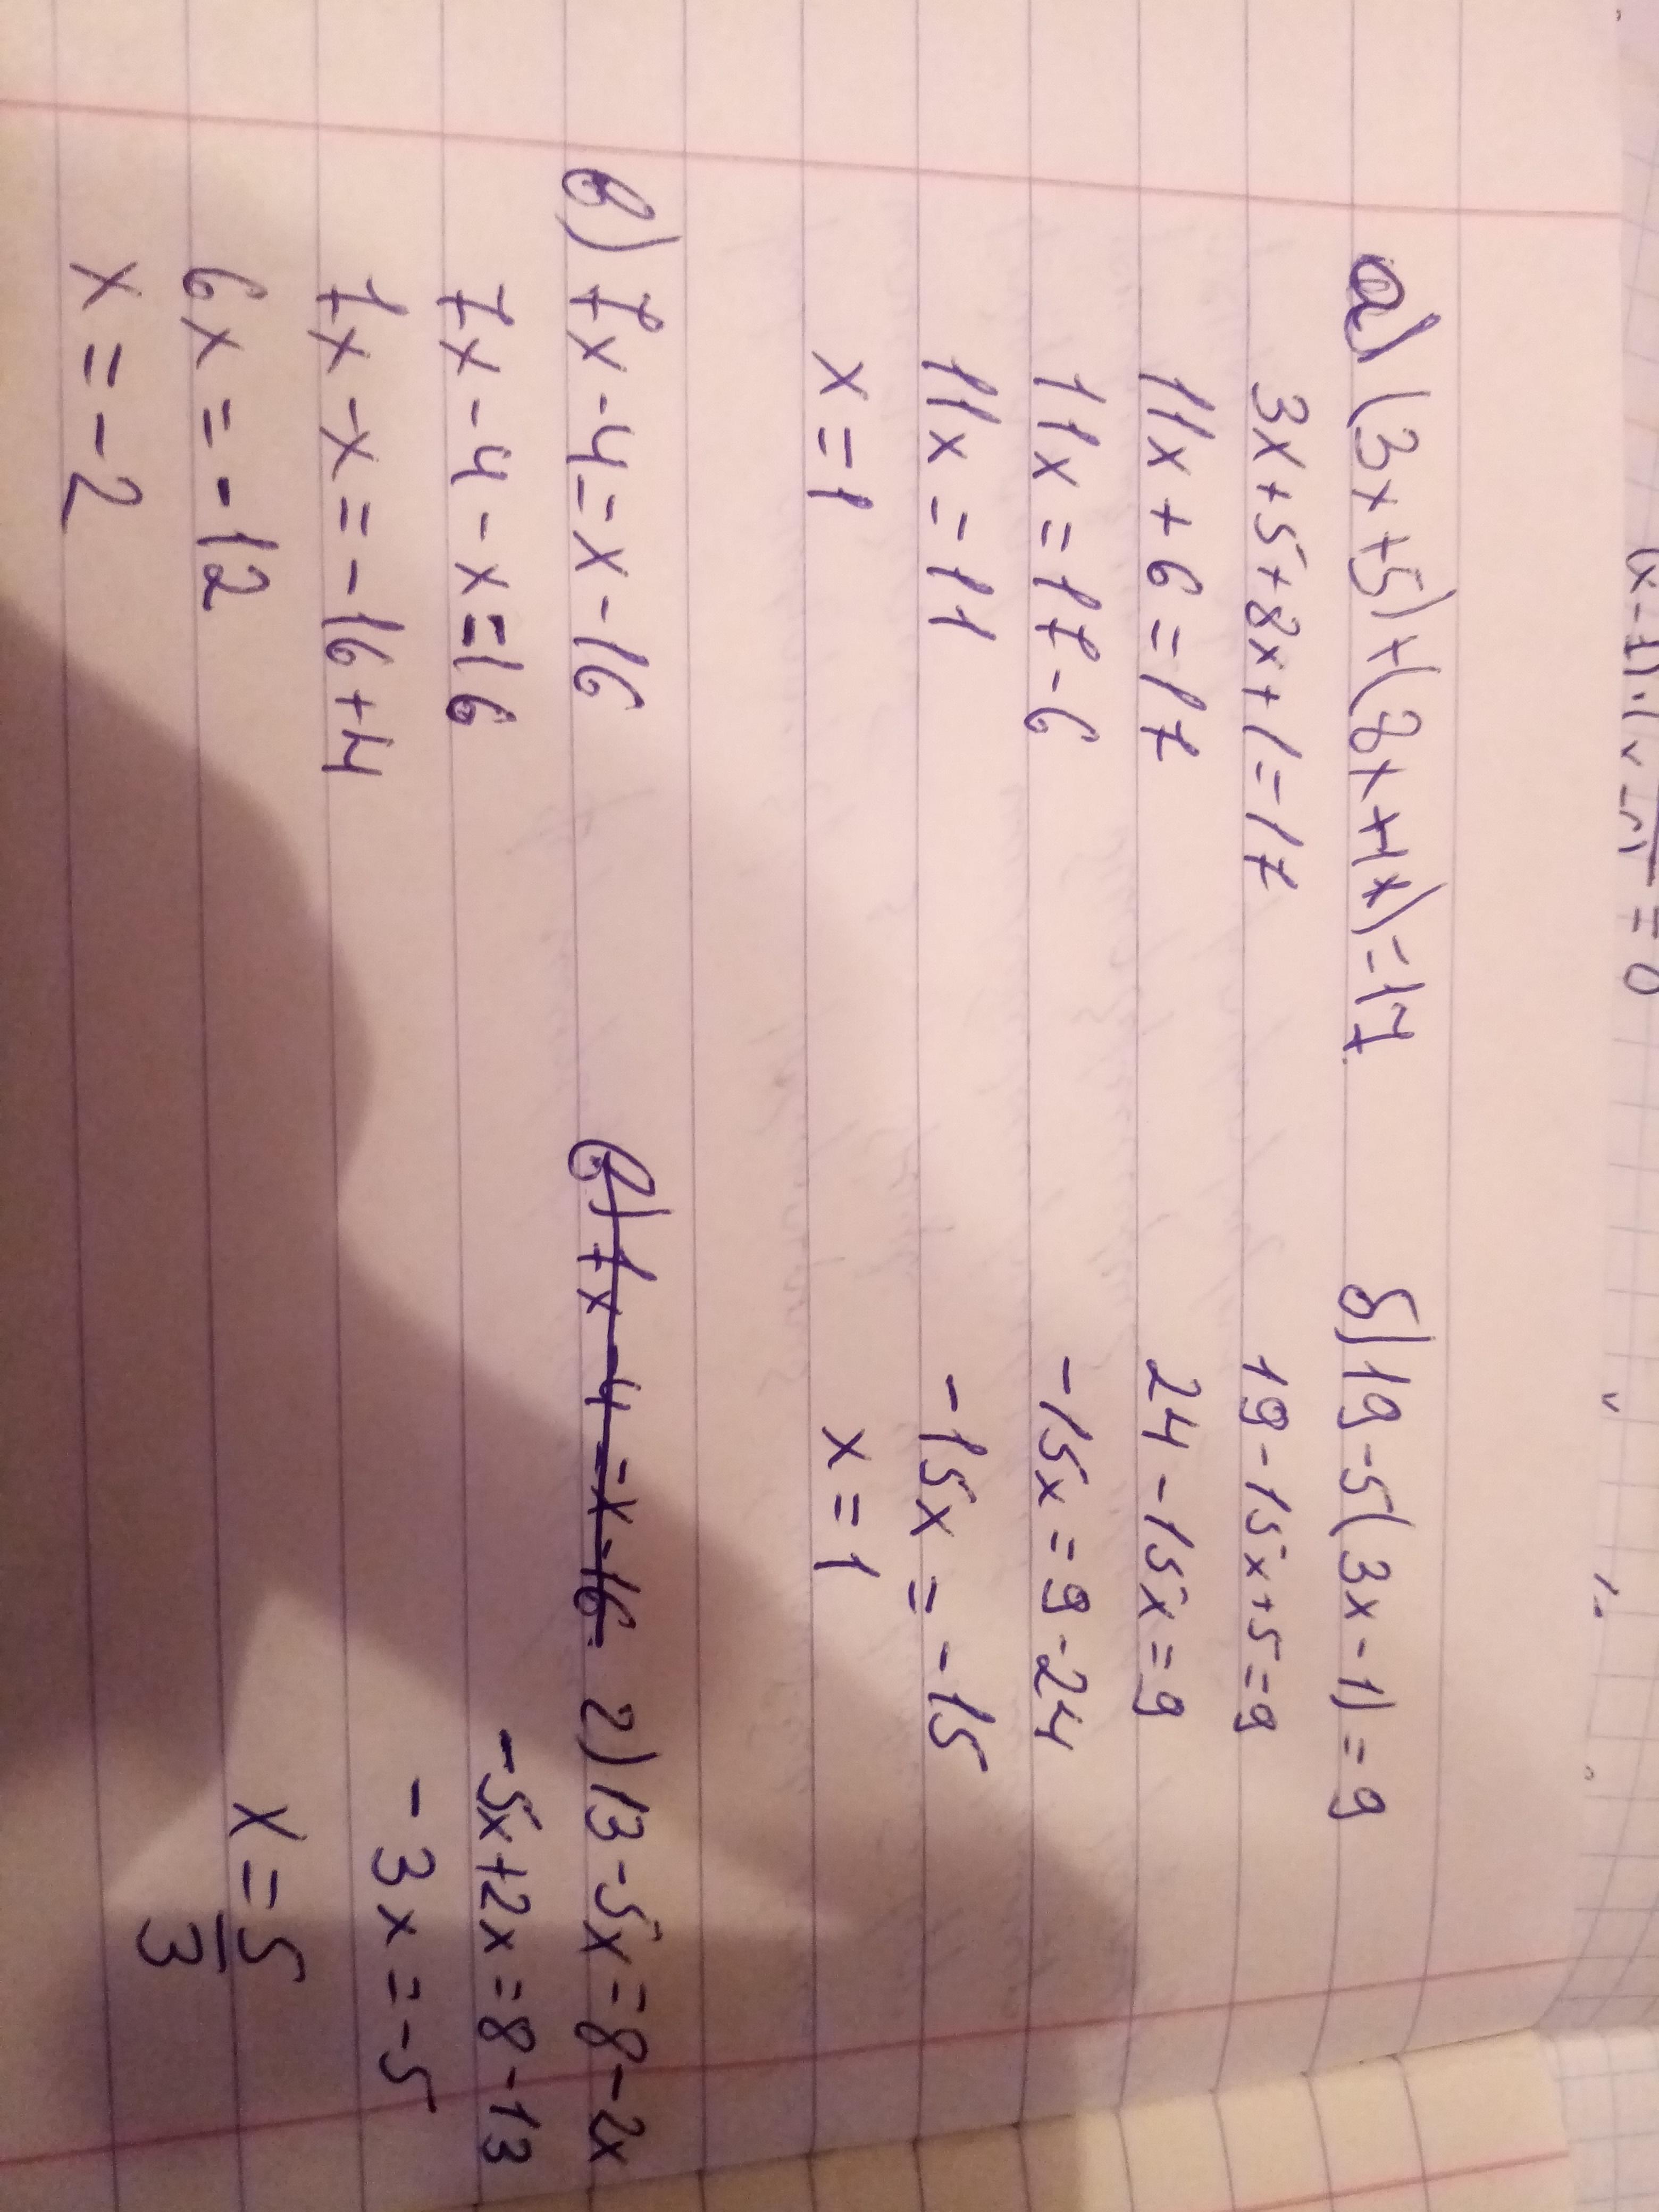 (x-1)·(x-5) = 0
а) (3x+5)+(8x+1)=17
3x+5+8x+1=17
11x+6=17
11x=17-6
11x=11
x=1
б) 19-5(3x-1)=9
19-15x+5=9
24-15x=9
-15x=9-24
-15x=-15
x=1
в) 7x-4=x-16
7x-4-x=16
7x-x=-16+4
6x=-12
x=-2
в) 7x-4=x-16
2) 13-5x=8-2x
-5x+2x=8-13
-3x=-5
x=5/3